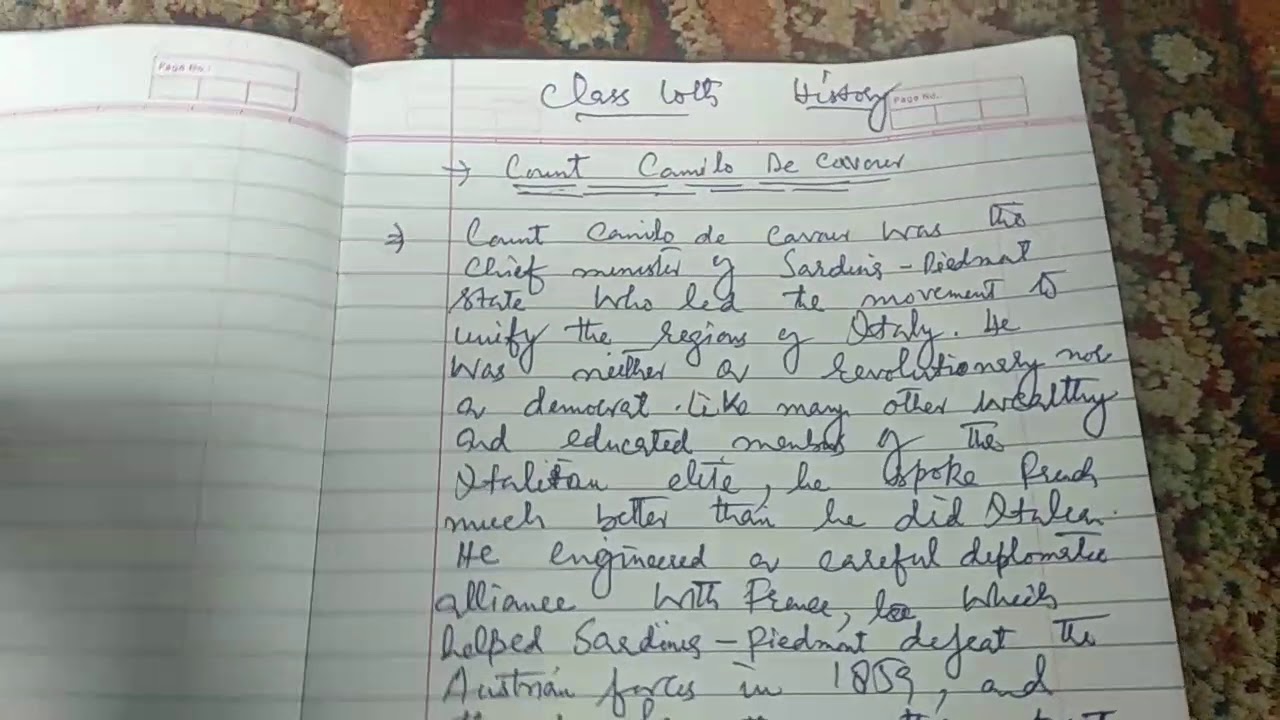 Page No.:
Class 10th History
Page No.
→ Count Camilo De Cavour
⇒ Count Camilo de Cavour was the
Chief minister of Sardinia-Piedmont
state who led the movement to
unify the regions of Italy. He
was neither a revolutionary nor
a democrat. Like many other wealthy
and educated members of the
Italian elite, he spoke French
much better than he did Italian.
He engineered a careful diplomatic
alliance with France, which
helped Sardinia-Piedmont defeat the
Austrian forces in 1859, and